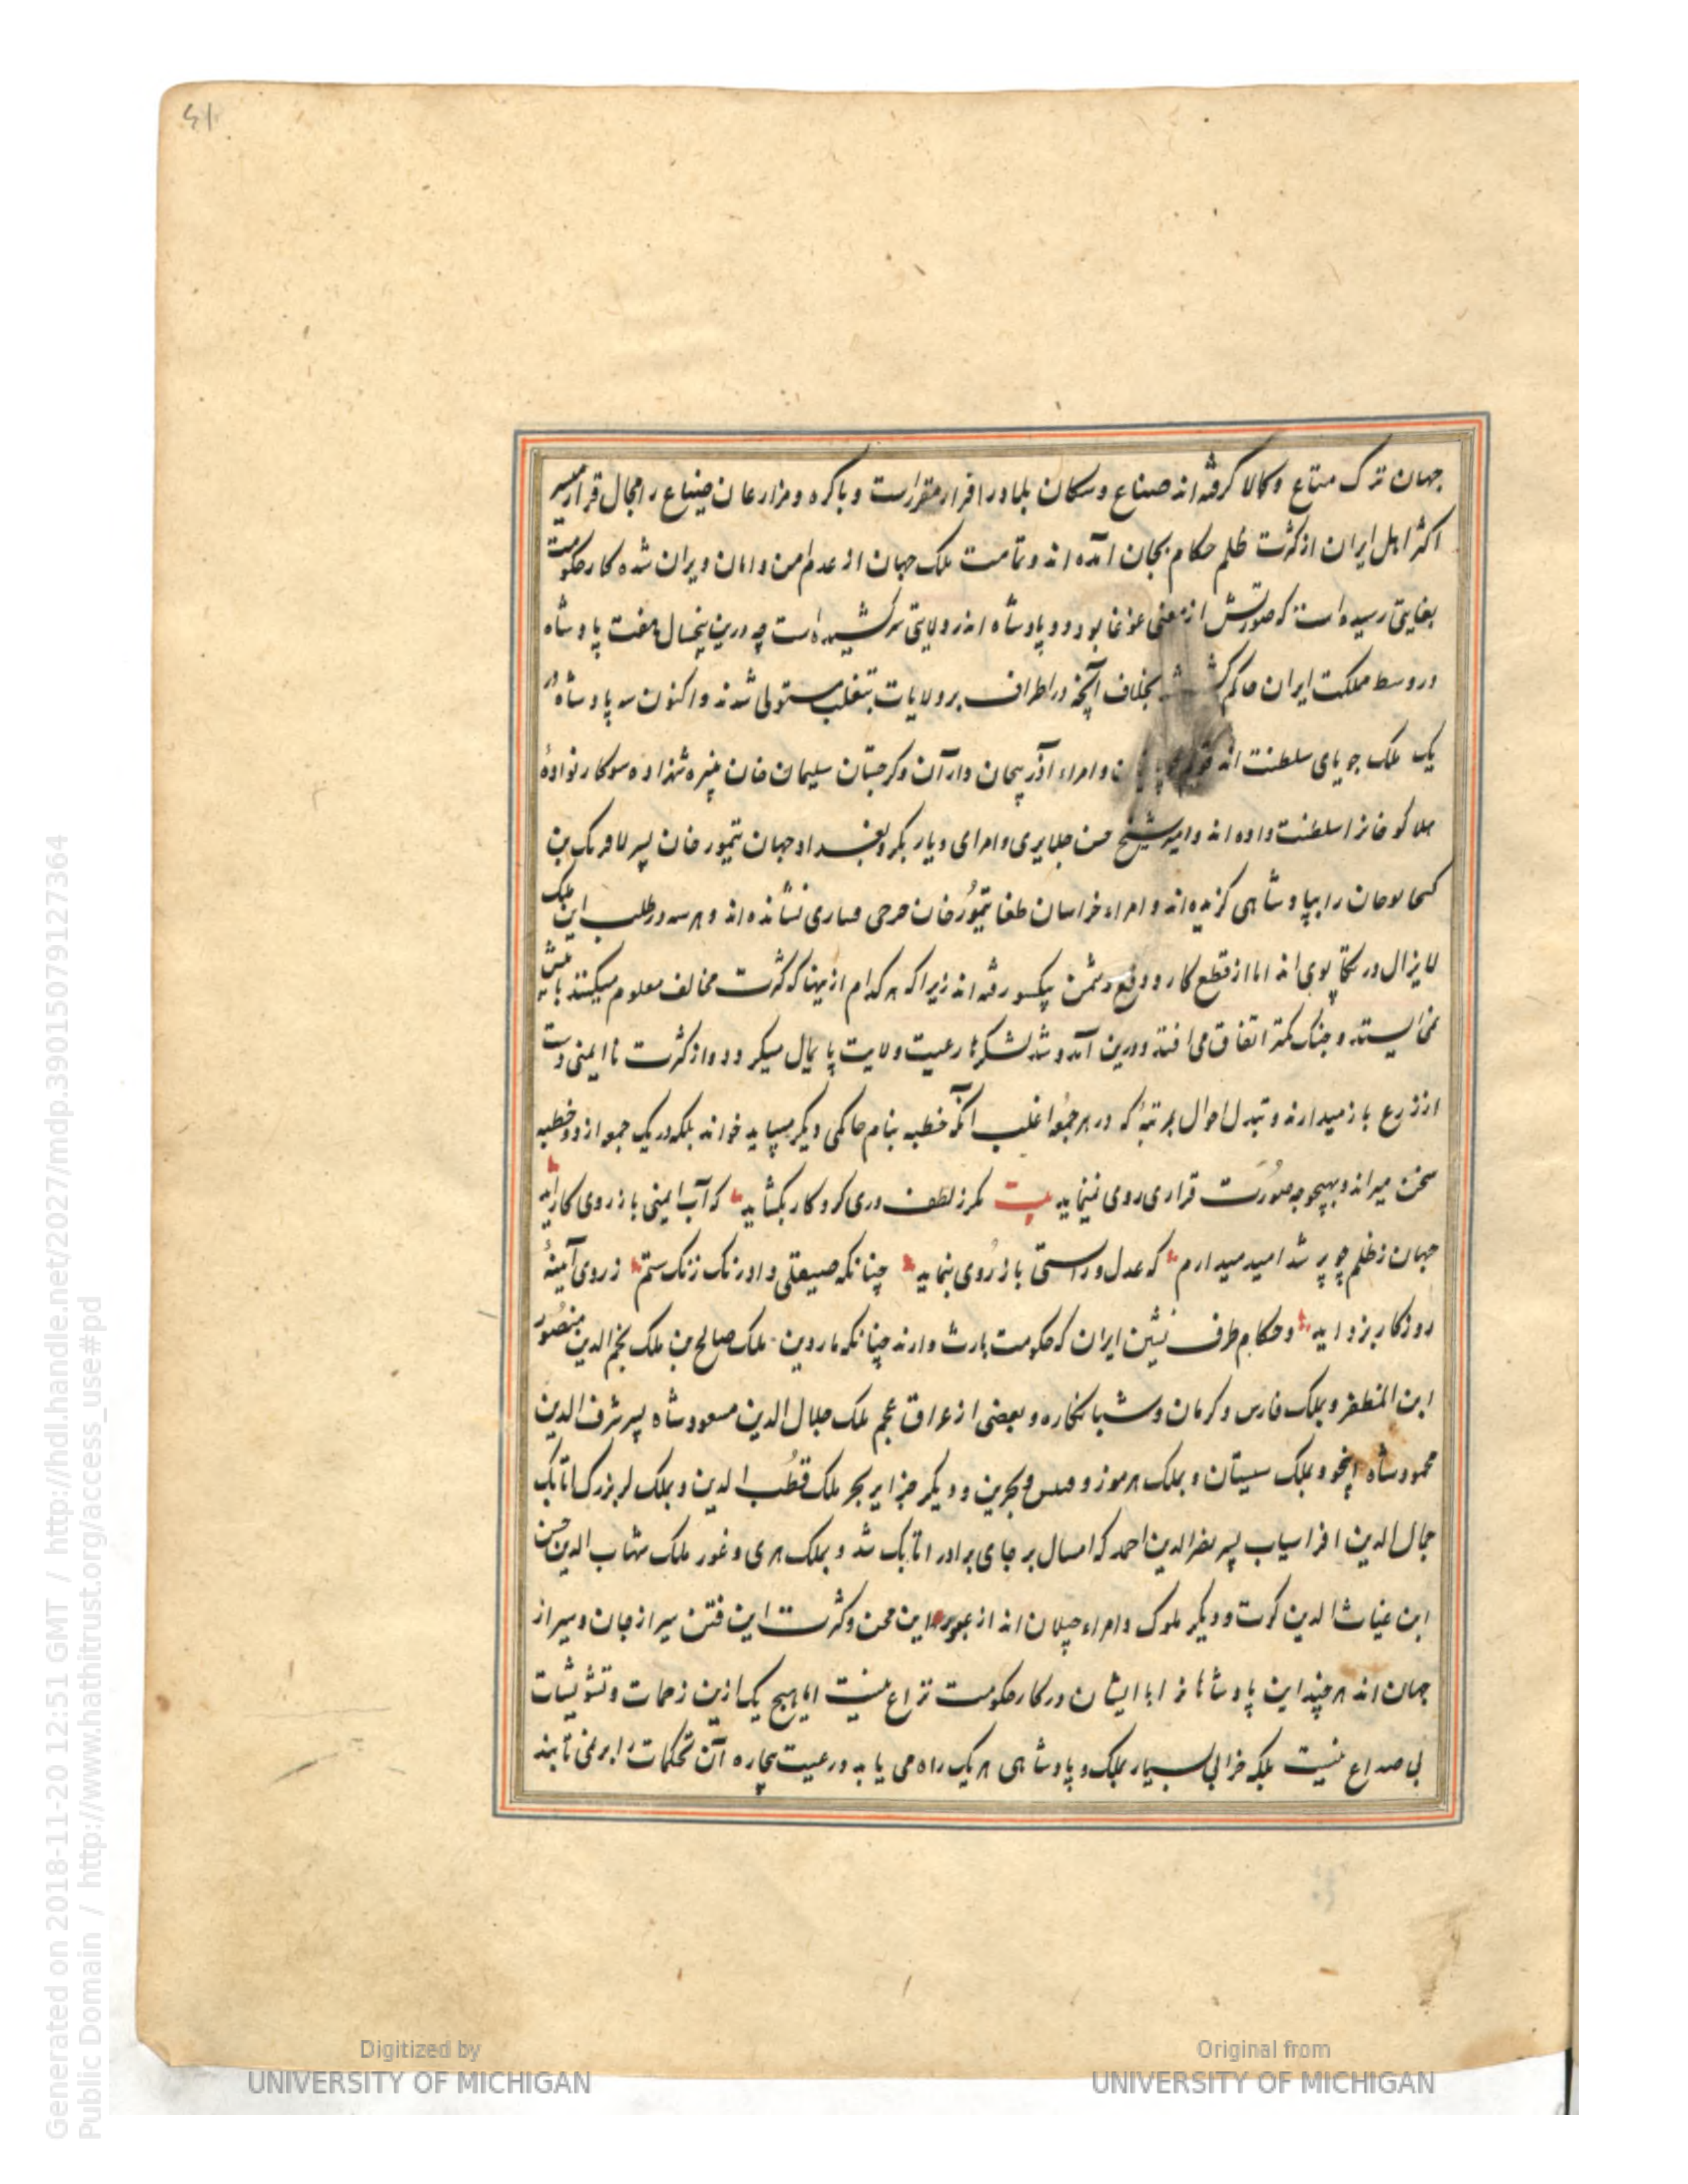 جهان ترک متاع و کالا گرفته اند صناع و سکان بلاد را فرار مقرر است و باکره و مزارعان ضیاع را مجال قرار میسر
اکثر اهل ایران از کثرت ظلم حکام بجان آمده اند و تمامت ملک جهان از عدم امن و امان ویران شده کار حکومت
بغایتی رسیده است که صورتش از معنی غوغا بود و دو پادشاه اندر ولایتی سرکشیده است چه درین پنجسال هفت پادشاه
در وسط مملکت ایران حاکم بخلاف آنچه در اطراف بر ولایات بتغلب مستولی شدند و اکنون سه پادشاه در
یک ملک جویای سلطنت اند و امراء آذربیجان و اران و کرجستان سلیمان خان نبیره شهزاده سوکار نوادهٔ
هلاکو خانرا سلطنت داده اند و امیر شیخ حسن جلایری و امرای دیار بکر و بغداد جهان تیمور خان پسر لافرنک بن
را بپادشاهی گزیده اند و امراء خراسان طغا تیمور خان نشانده اند و هر سه در طلب این ملک
لا یزال در تکاپوی اند اما از قطع کار و دفع دشمن یکسو رفته اند زیرا که هر کدام ازینها که کثرت مخالف معلوم میکنند
نمی ایستند و جنک کمتر اتفاق می افتد و درین آمد و شد لشکرها رعیت ولایت پایمال میکردد و از کثرت نا ایمنی دست
از زرع باز میدارند و تبدل احوال بمرتبهٔ که در هر جمعه اغلب آنکه خطبه بنام حاکمی دیکر میباید خواند بلکه در یک جمعه از دو خطبه
سخن میراند و بهیچوجه صورت قراری روی نمینماید بیت مکر ز لطف دری کردکار بکشاید که آب ایمنی باز روی کار آید
جهان ز ظلم چو پر شد امید میدارم که عدل و راستی باز روی بنماید چنانکه صیقلی داد زنک ستم ز روی آینهٔ
روزکار بزداید و حکام طرف نشین ایران که حکومت بارث دارند چنانکه ماردین ملک صالح بن ملک نجم الدین منصور
ابن المظفر و بملک فارس و کرمان و شبانکاره و بعضی از عراق عجم ملک جلال الدین مسعود شاه پسر شرف الدین
محمود شاه اینجو و بملک سیستان و بملک هرموز و قیس و بحرین و دیکر جزایر بحر ملک قطب الدین و بملک لر بزرک اتابک
جمال الدین افراسیاب پسر نصرالدین احمد که امسال بر جای برادر اتابک شد و بملک هری و غور ملک شهاب الدین حسن
ابن غیاث الدین کرت و دیکر ملوک و امراء جیلان اند از عبور این محن و کثرت این فتن سیر از جان و سیر از
جهان اند هر چند این پادشاهانرا با ایشان در کار حکومت نزاع نیست اما هیچ یک ازین زحمات و تشویشات
بی صداع نیست بلکه خرابی بسیار بملک و پادشاهی هر یک راه می یابد و رعیت بیچاره آن تحکمات را بر نمی تابند